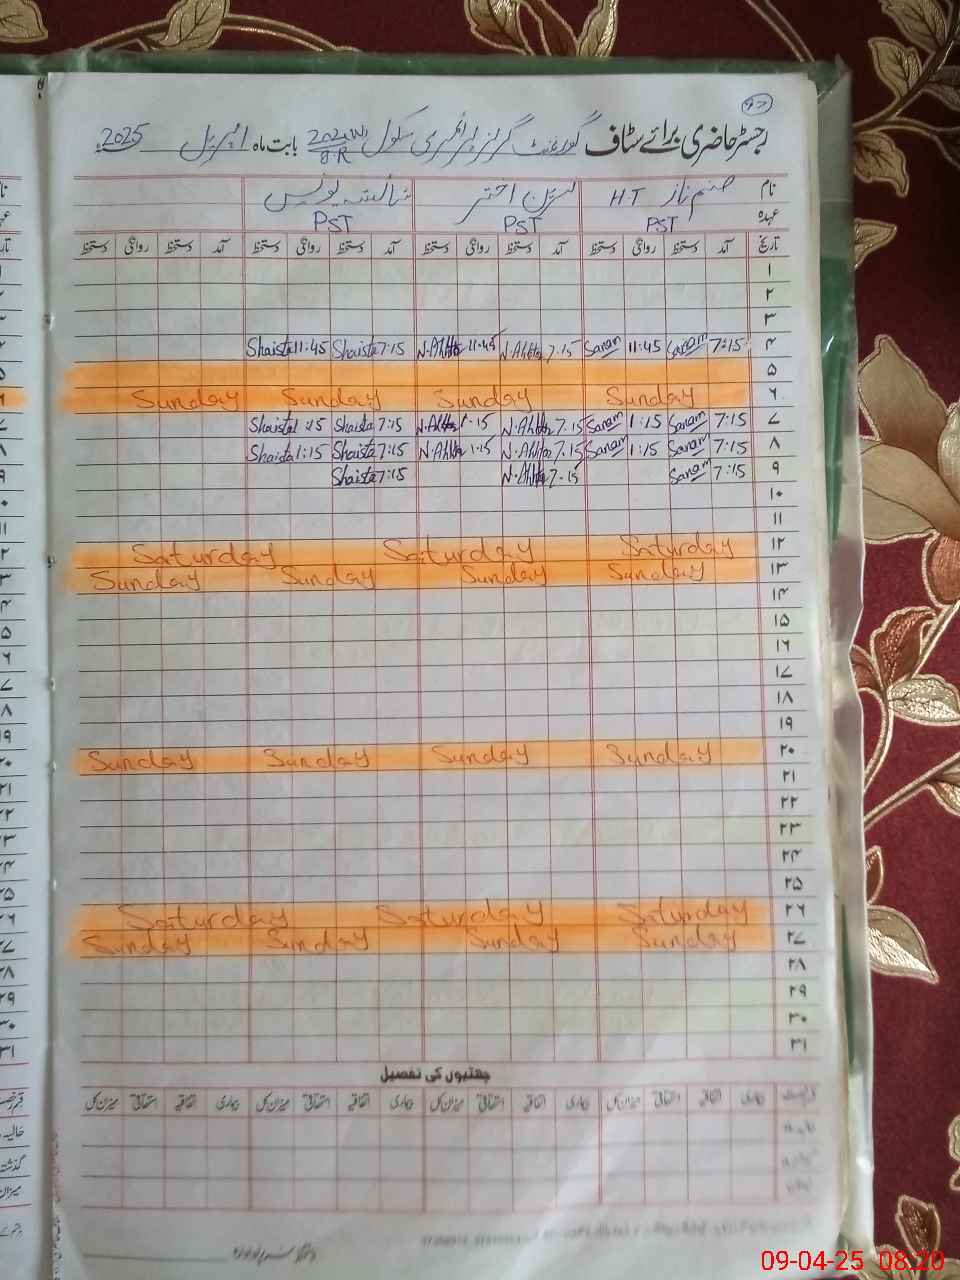 ۹۷
رجسٹر حاضری برائے سٹاف گورنمنٹ گرلز پرائمری سکول 202W/8-R بابت ماہ اپریل 2025
نام صنم ناز H.T نسرین اختر شائستہ یونس
عہدہ PST PST PST
تاریخ آمد دستخط روانگی دستخط آمد دستخط روانگی دستخط آمد دستخط روانگی دستخط آمد دستخط روانگی دستخط
۱
۲
۳
۴ 7:15 Sanam 11:45 Sanam 7.15 N.Akhtar 11:45 N.Akhtar 7:15 Shaista 11:45 Shaista
۵
۶ Sunday Sunday Sunday Sunday
۷ 7:15 Sanam 1:15 Sanam 7.15 N.Akhtar 1.15 N.Akhtar 7:15 Shaista 1:15 Shaista
۸ 7:15 Sanam 1:15 Sanam 7.15 N.Akhtar 1.15 N.Akhtar 7:15 Shaista 1:15 Shaista
۹ 7:15 Sanam 7.15 N.Akhtar 7:15 Shaista
۱۰
۱۱
۱۲ Saturday Saturday Saturday
۱۳ Sunday Sunday Sunday Sunday
۱۴
۱۵
۱۶
۱۷
۱۸
۱۹
۲۰ Sunday Sunday Sunday Sunday
۲۱
۲۲
۲۳
۲۴
۲۵
۲۶ Saturday Saturday Saturday
۲۷ Sunday Sunday Sunday Sunday
۲۸
۲۹
۳۰
۳۱
چھٹیوں کی تفصیل
بیماری اتفاقیہ استحقاقی میزان کل بیماری اتفاقیہ استحقاقی میزان کل بیماری اتفاقیہ استحقاقی میزان کل بیماری اتفاقیہ استحقاقی میزان کل
09-04-25 08:20